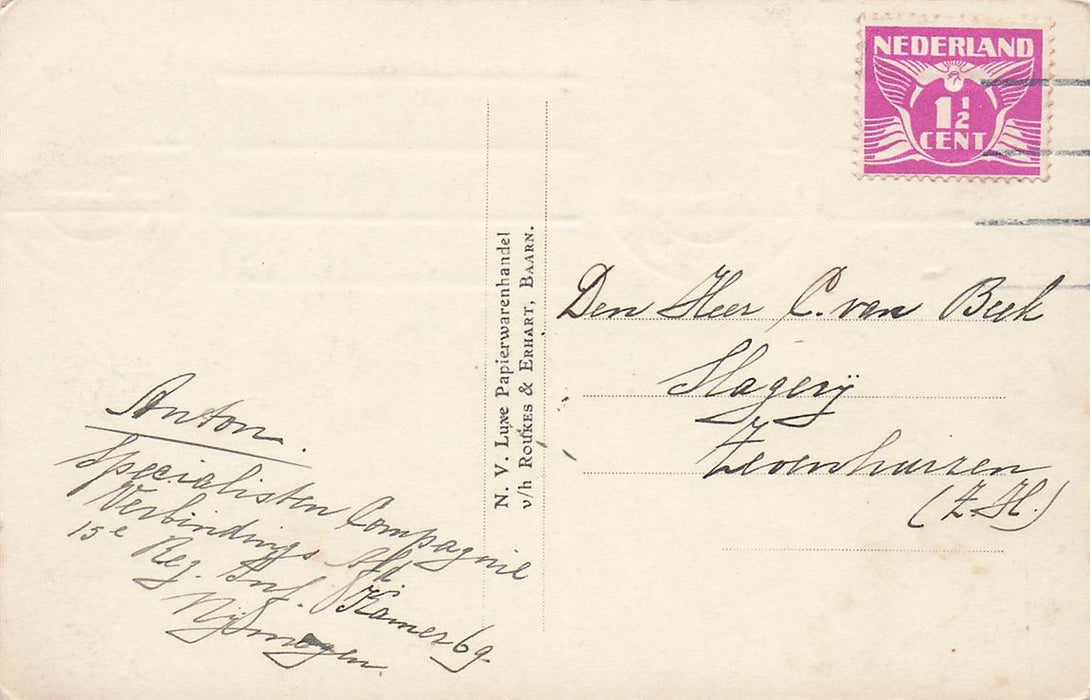 NEDERLAND
1½
CENT
N. V. Luxe Papierwarenhandel
v/h Roukes & Erhart, Baarn.
Den Heer C. van Beek
Slagerij
Zevenhuizen
(Z.H.)
Anton.
Specialisten Compagnie
Verbindings Afd.
15e Reg. Inf. Kamer 69
Nijmegen.